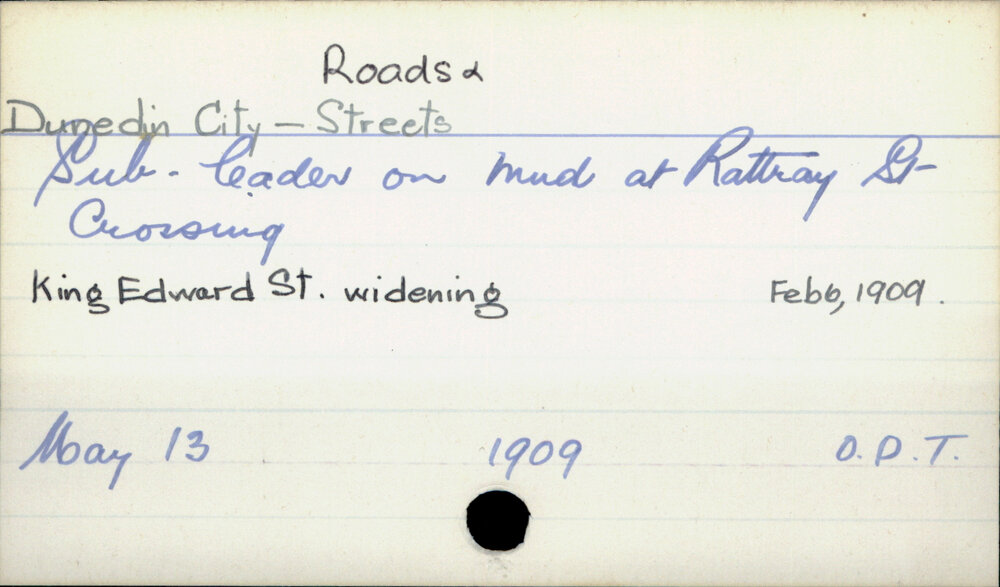 Roads &
Dunedin City - Streets
Sub-leader on mud at Rattray St
Crossing
King Edward St. widening Feb 6, 1909.
May 13 1909 O.D.T.